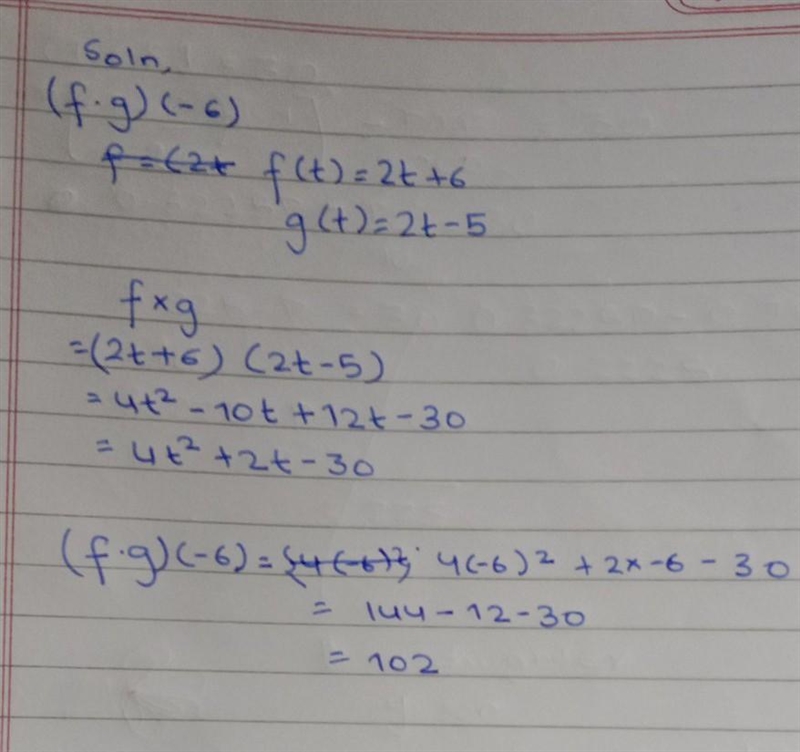 Soln,
(f·g)(-6)
f=(2t f(t)=2t+6
g(t)=2t-5
f×g
=(2t+6) (2t-5)
=4t²-10t+12t-30
=4t²+2t-30
(f·g)(-6)={4(-6)²} 4(-6)²+2×-6-30
=144-12-30
=102